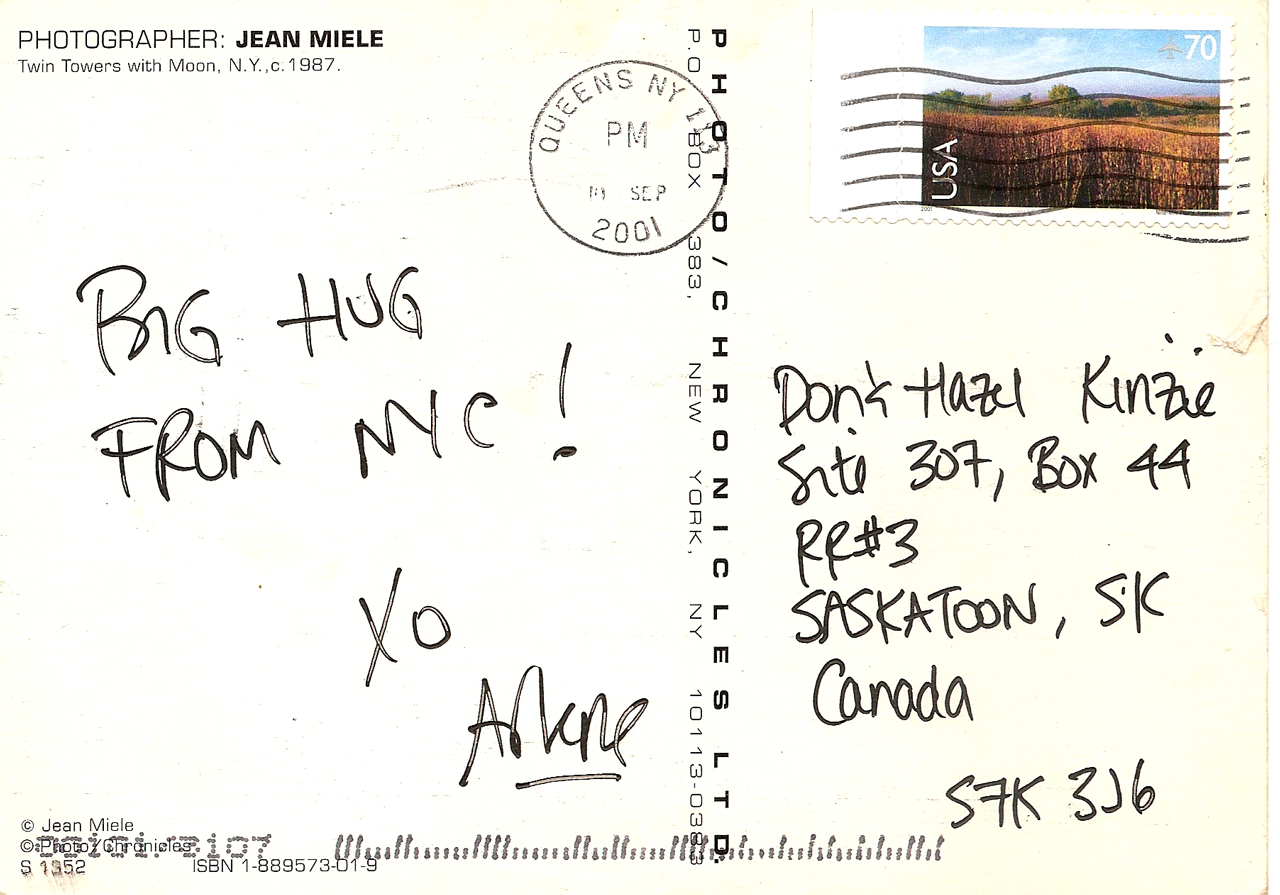 PHOTOGRAPHER: JEAN MIELE
Twin Towers with Moon, N.Y.,c.1987.
QUEENS NY
PM
SEP
2001
70
USA
2001
BIG HUG
FROM NYC!
XO
Arlene
PHOTO/CHRONICLES LTD.
P.O. BOX 383, NEW YORK, NY 10113-0383
Don & Hazel Kinzie
Site 307, Box 44
RR#3
SASKATOON, SK
Canada
S7K 3J6
© Jean Miele
© Photo/Chronicles
S 1352
ISBN 1-889573-01-9